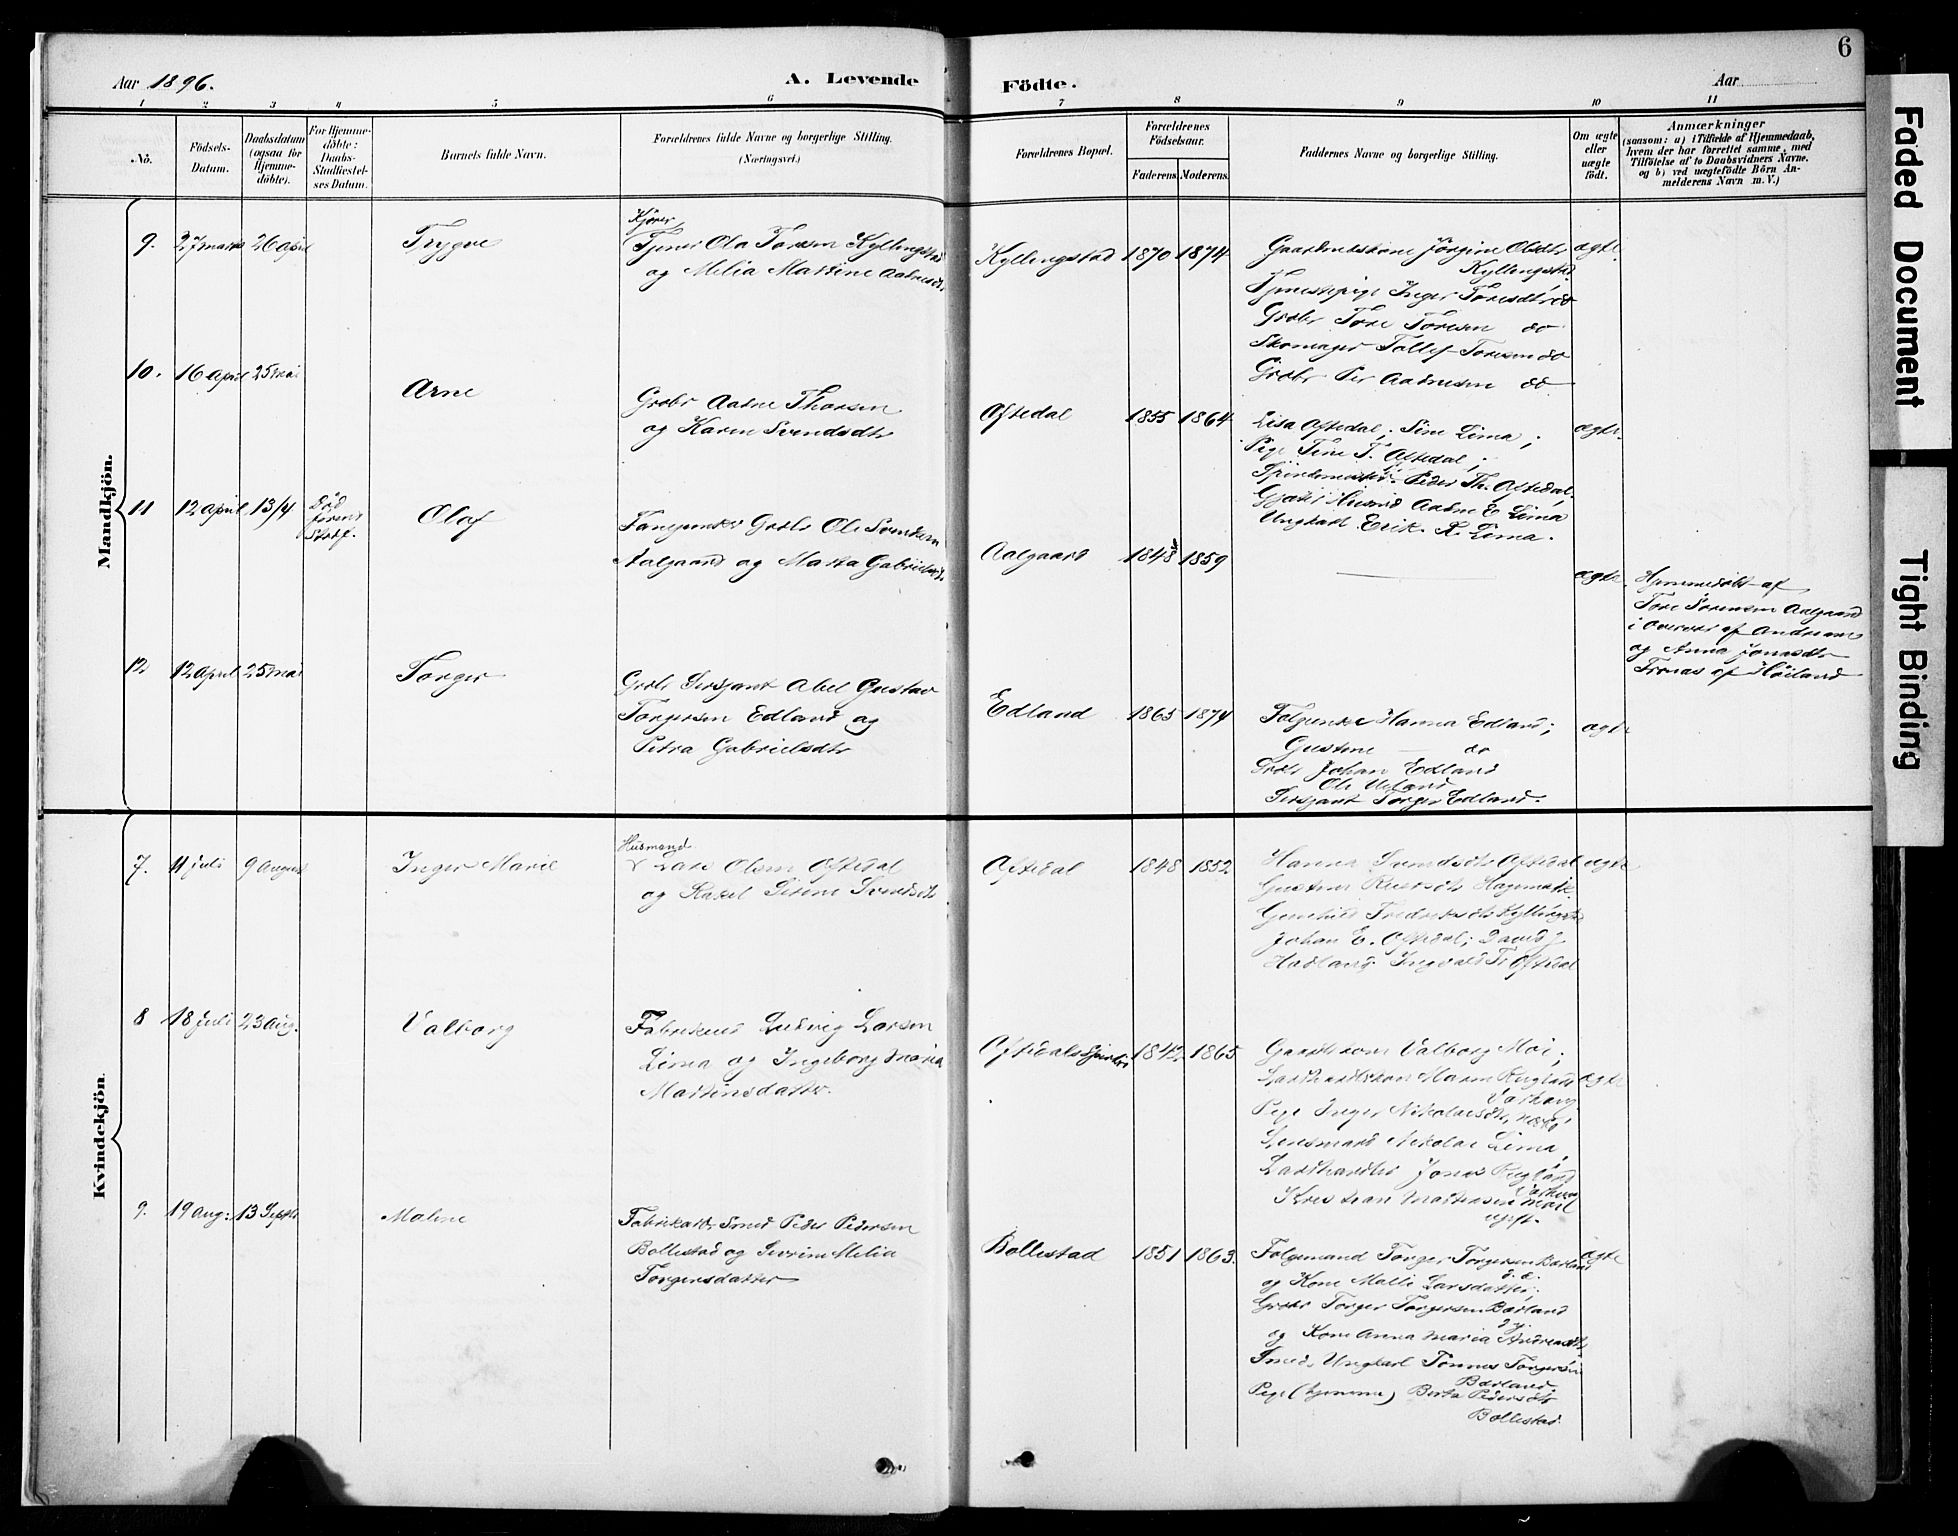 Aar 1896.
A. Levende
Födte.
Aar
6
1 2 3 4 5 6 7 8 9 10 11
No.
Födsels-
Datum.
Daabsdatum
(ogsaa for
Hjemme-
döbte).
For Hjemme-
döbte:
Daabs-
Stadfæstel-
ses Datum.
Barnets fulde Navn.
Forældrenes fulde Navne og borgerlige Stilling.
(Næringsvei.)
Forældrenes Bopæl.
Forældrenes
Födselsaar.
Faderens
Moderens.
Faddernes Navne og borgerlige Stilling.
Om ægte
eller
uægte
födt.
Anmærkninger
(saasom: a) i Tilfælde af Hjemmedaab,
hvem der har forrettet samme, med
Tilföielse af to Daabsvidners Navne.
og b) ved uægtefödte Börn An-
melderens Navn m. V.)
Mandkjön.
9. 27 marts 26 april Trygve
Kjörer
Ola Torsen Kyllingstad
og Milia Martine Aadnesdtr
Kyllingstad 1870 1874
Gaardmandskone Jörgine Olsdtr
Kyllingstad
Tjenestepige Inger Toresdtr do
Grdbr Tore Toresen do
Skomager Tollef Toresen do
Grdbr Per Aadnesen do
ægte.
10. 16 april 25 mai Arne
Grdbr Aadne Thorsen
og Karen Svendsdtr
Oftedal 1855 1864
Lisa Oftedal; Sine Lima;
Pige Tine T. Oftedal;
Peder Th. Oftedal;
Aadne E. Lima
Ungkarl Erik R Lima.
ægte.
11 12 april 13/4 Död
Olaf
Grdbr Ole Svendsen
Aalgaard og Marta Gabrielsdtr
Aalgaard 1848 1859
ægte.
Hjemmedöbt af
Tore Sörensen Aalgaard
i Overvær af Andreas
og Anna Jonasdtr
af Höiland
12 12 april 25 mai Torger
Grdbr Sersjant Abel Gustav
Torgersen Edland og
Petra Gabrielsdtr
Edland 1865 1874
Hanna Edland;
Gustine — do
Grdbr Johan Edland
Ole
Sersjant Torger Edland.
ægte
Kvindekjön.
7. 11 juli 9 august Inger Marie
Husmand
Lars Olsen Oftedal
og Rakel Sirine Svendsdtr
Oftedal 1848 1852
Hanna Svendsdtr Oftedal
Gustine
Gunhild Fredriksdtr Kyllingstad
Johan E. Oftedal; David J
Hadland Ingvald T. Oftedal
ægte
8 18 juli 23 aug. Valborg
Ludvig Larsen
Lima og Ingeborg Maria
Martinsdatter.
1842 1865
Valborg Moi;
Maren
Varhaug
Pige Inger Nikolaisdtr,
Lensmand Nikolai Lima,
Landhandler Jonas
Kristian Martinsen
ugift.
ægte
9. 19 aug: 13 Septbr Maline
Fabrikarb. Smed Peder Pedersen
Bollestad og Sevrine Milia
Torgersdatter
Bollestad 1851 1863.
Folgemand Torger Torgersen Bærland
og Kone Malli Larsdatter;
Grdbr Torger Torgersen Bærland
og Kone Anna Maria Andreasdtr
Smed, Ungkarl Tönnes Torgersen
Bærland.
Pige (hjemme) Berta Pedersdtr
Bollestad.
ægte
Faded Document
Tight Binding